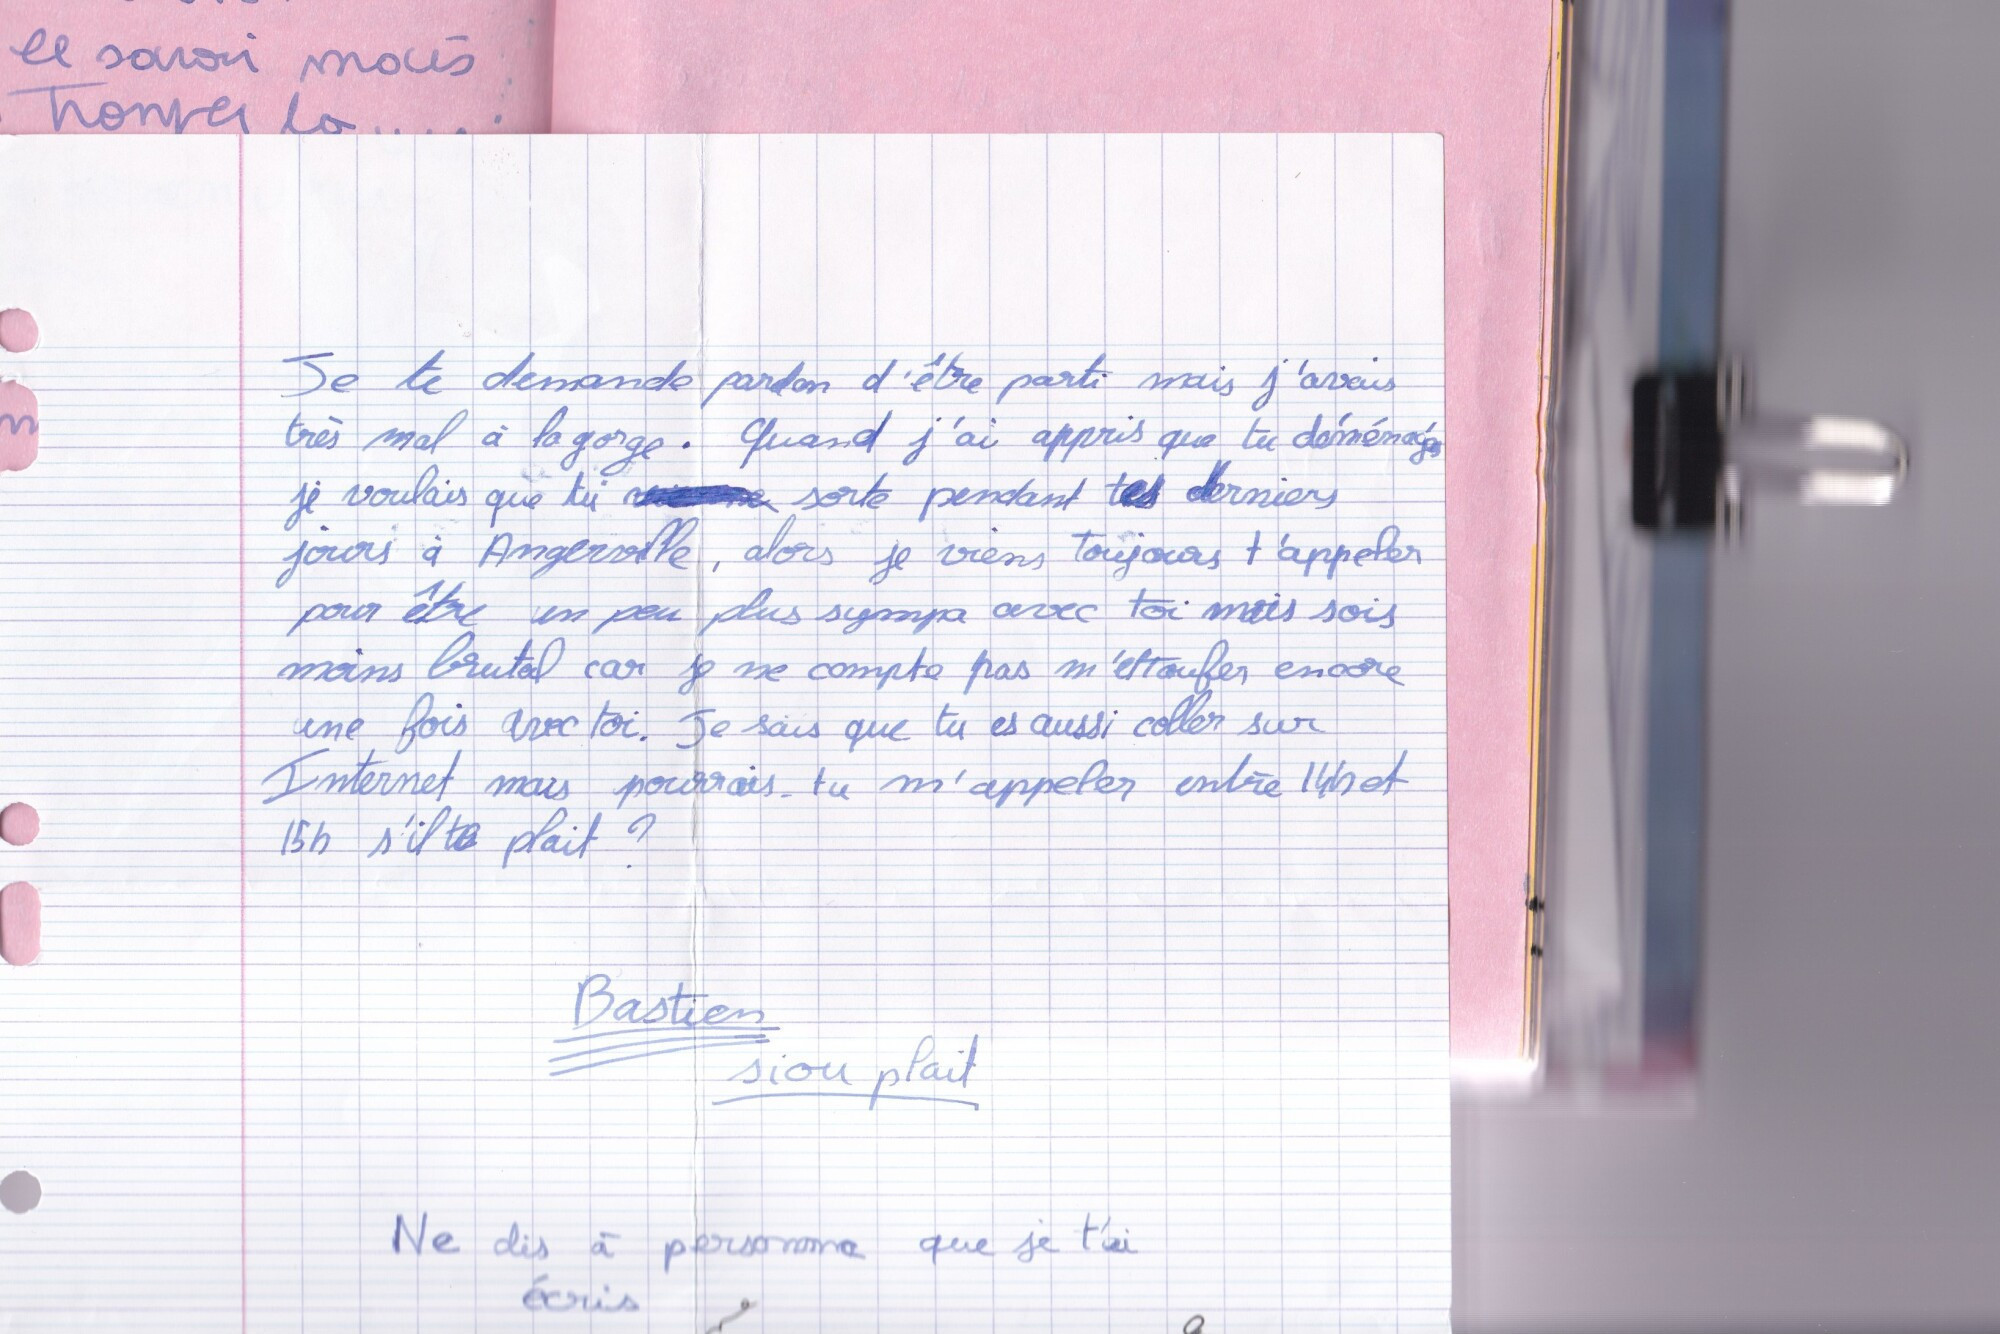 et savoir mais
Tromper la.....
m
Je te demande pardon d'être parti mais j'avais
très mal à la gorge. Quand j'ai appris que tu déménag
je voulais que tu sorte pendant tes derniers
jours à Angerville, alors je viens toujours t'appeler
pour être un peu plus sympa avec toi mais sois
moins brutal car je ne compte pas m'éttoufer encore
une fois avec toi. Je sais que tu es aussi coller sur
Internet mais pourrais-tu m'appeler entre 14h et
15h s'il te plait ?
Bastien
siou plait
Ne dis à personne que je t'ai
écris